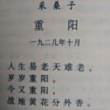 采桑子
重阳
一九二九年十月
人生易老天难老,
岁岁重阳。
今又重阳,
战地黄花分外香。